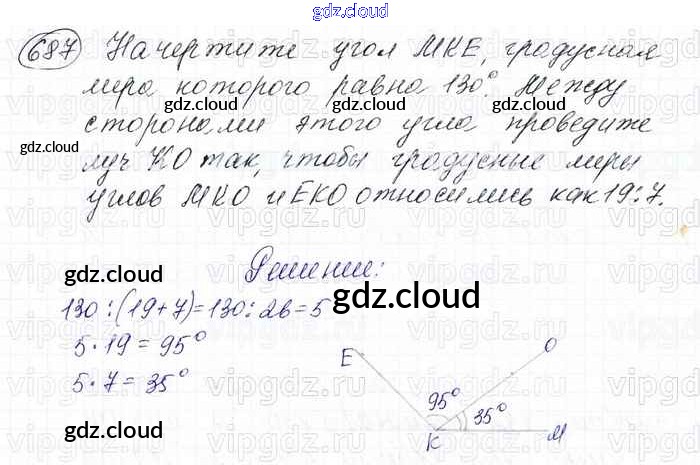 gdz.cloud
687 Начертите угол МКЕ, градусная
мера которого равна 130°. Между
gdz.cloud gdz.cloud gdz.cloud
сторонами этого угла проведите
gdz.cloud
луч КО так, чтобы градусные меры
углов МКО и ЕКО относились как 19:7.
vipgdz.ru vipgdz.ru vipgdz.ru vipgdz.ru
Решение:
gdz.cloud
130:(19+7)=130:26=5
gdz.cloud
5·19=95°
5·7=35°
E
O
95°
35°
gdz.cloud
K
M